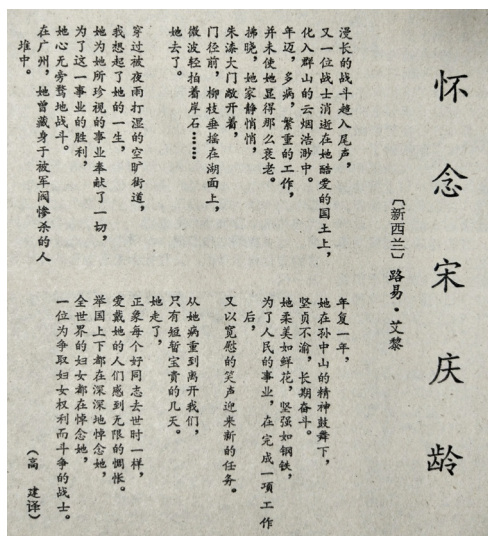 怀念宋庆龄
〔新西兰〕路易·艾黎
漫长的战斗趋入尾声，
又一位战士消逝在她酷爱的国土上，
化入群山的云烟浩渺中。
年迈，多病，繁重的工作，
并未使她显得那么衰老。
拂晓，她家静悄悄，
朱漆大门敞开着，
门径前，柳枝垂摇在湖面上，
微波轻拍着岸石……
她去了。
穿过被夜雨打湿的空旷街道，
我想起了她的一生，
她为她所珍视的事业奉献了一切，
为了这一事业的胜利，
她心无旁骛地战斗。
在广州，她曾藏身于被军阀惨杀的人
堆中。
年复一年，
她在孙中山的精神鼓舞下，
坚贞不渝，长期奋斗。
她柔美如鲜花，坚强如钢铁，
为了人民的事业，在完成一项工作
后，
又以宽慰的笑声迎来新的任务。
从她病重到离开我们，
只有短暂宝贵的几天。
她走了，
正象每个好同志去世时一样，
爱戴她的人们感到无限的惆怅。
举国上下都在深深地悼念她，
全世界的妇女都在悼念她，
一位为争取妇女权利而斗争的战士。
（高 建译）